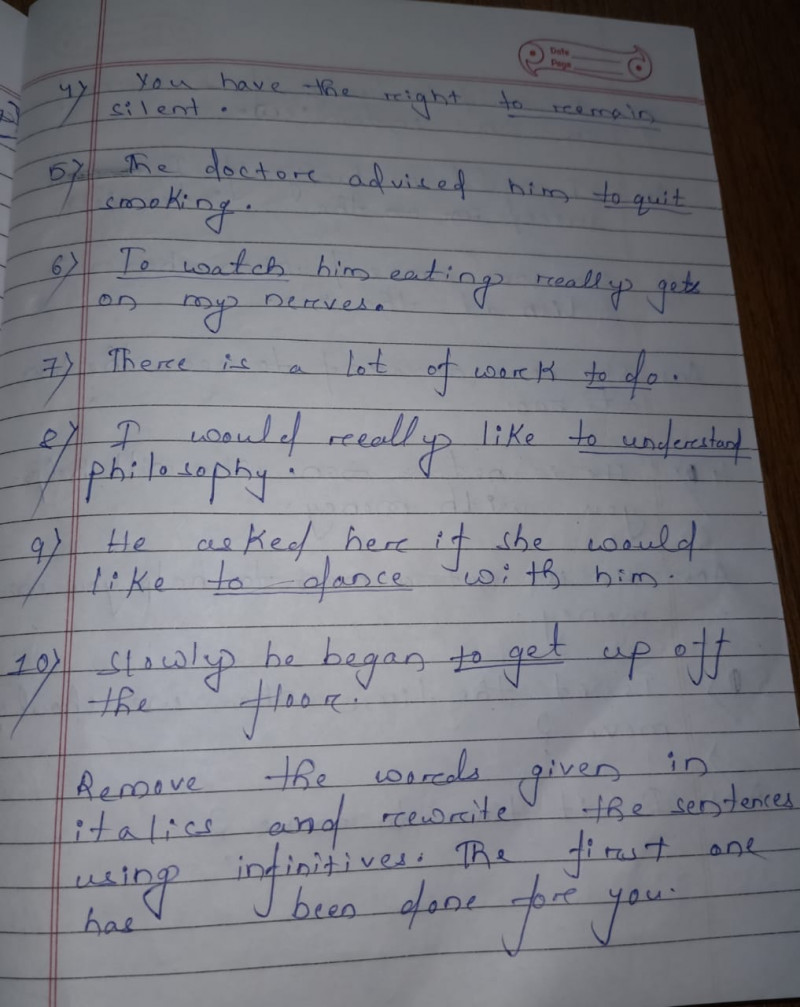 Date
Page
4) You have the right to remain
silent.
5) The doctor advised him to quit
smoking.
6) To watch him eating really gets
on my nerves.
7) There is a lot of work to do.
8) I would really like to understand
philosophy.
9) He asked her if she would
like to dance with him.
10) Slowly he began to get up off
the floor.
Remove the words given in
italics and rewrite the sentences
using infinitives. The first one
has been done for you.